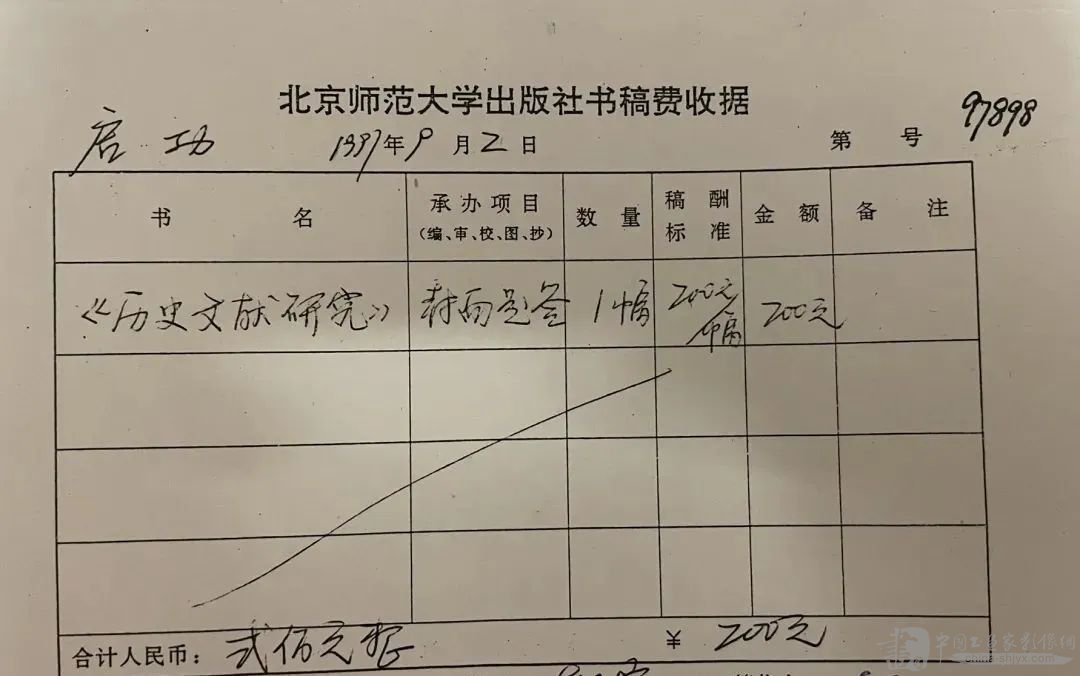 北京师范大学出版社书稿费收据
97898
启功 1997年9月2日 第 号
书名 承办项目 数量 稿酬 金额 备注
(编、审、校、图、抄) 标准
《历史文献研究》 封面题签 1幅 200元/幅 200元
合计人民币：贰佰元整 ￥ 200元